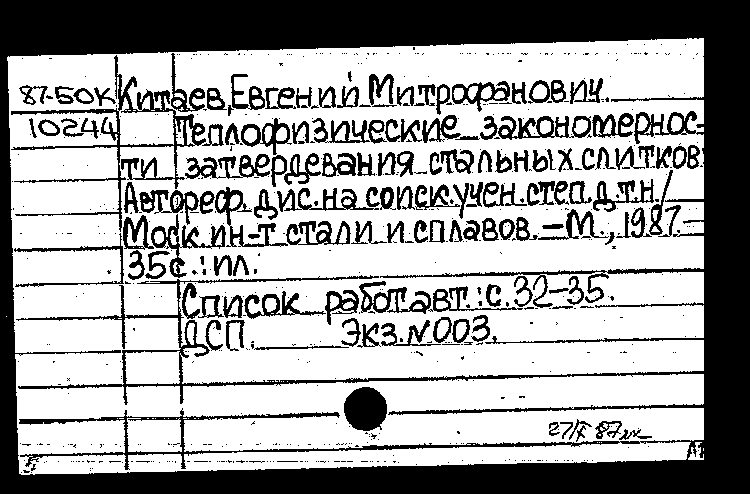 87-50К Китаев, Евгений Митрофанович
10244 Теплофизические закономернос-
ти затвердевания стальных слитков:
Автореф. дис. на соиск. учен. степ. д.т.н/
Моск. ин-т стали и сплавов. – М., 1987.–
35с.: ил.
Список работ авт.: с. 32–35.
ДСП. Экз. N 003.